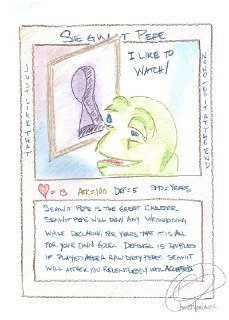 SEGWIT PEPE
I LIKE TO
WATCH!
JUST LIKE THAT
= 13 ATK=100 DEF=5 SPD=YEARS
SEGWIT PEPE IS THE GREAT
SEGWIT PEPE WILL DENY ANY WRONGDOING
WHILE DECLARING FOR YEARS THAT IT IS ALL
FOR YOUR OWN GOOD. DEFENSE IS TRIPLED
IF PLAYED AFTER A RAW DIRTY PEPE! SEGWIT
WILL ATTACK YOU RELENTLESSLY UNTIL ACCEPTED